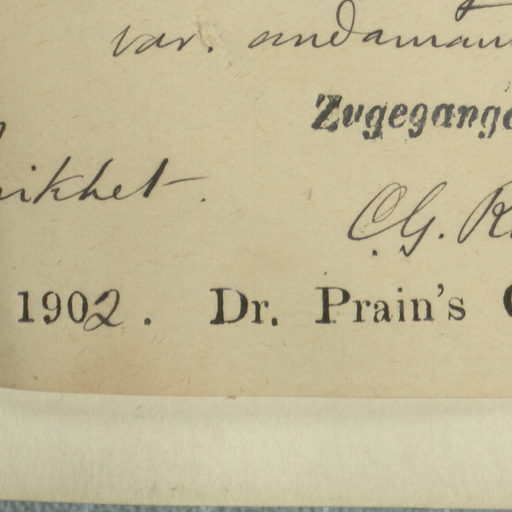 var. andaman
Zugegang
ikhet.
C.G. R
1902. Dr. Prain's C